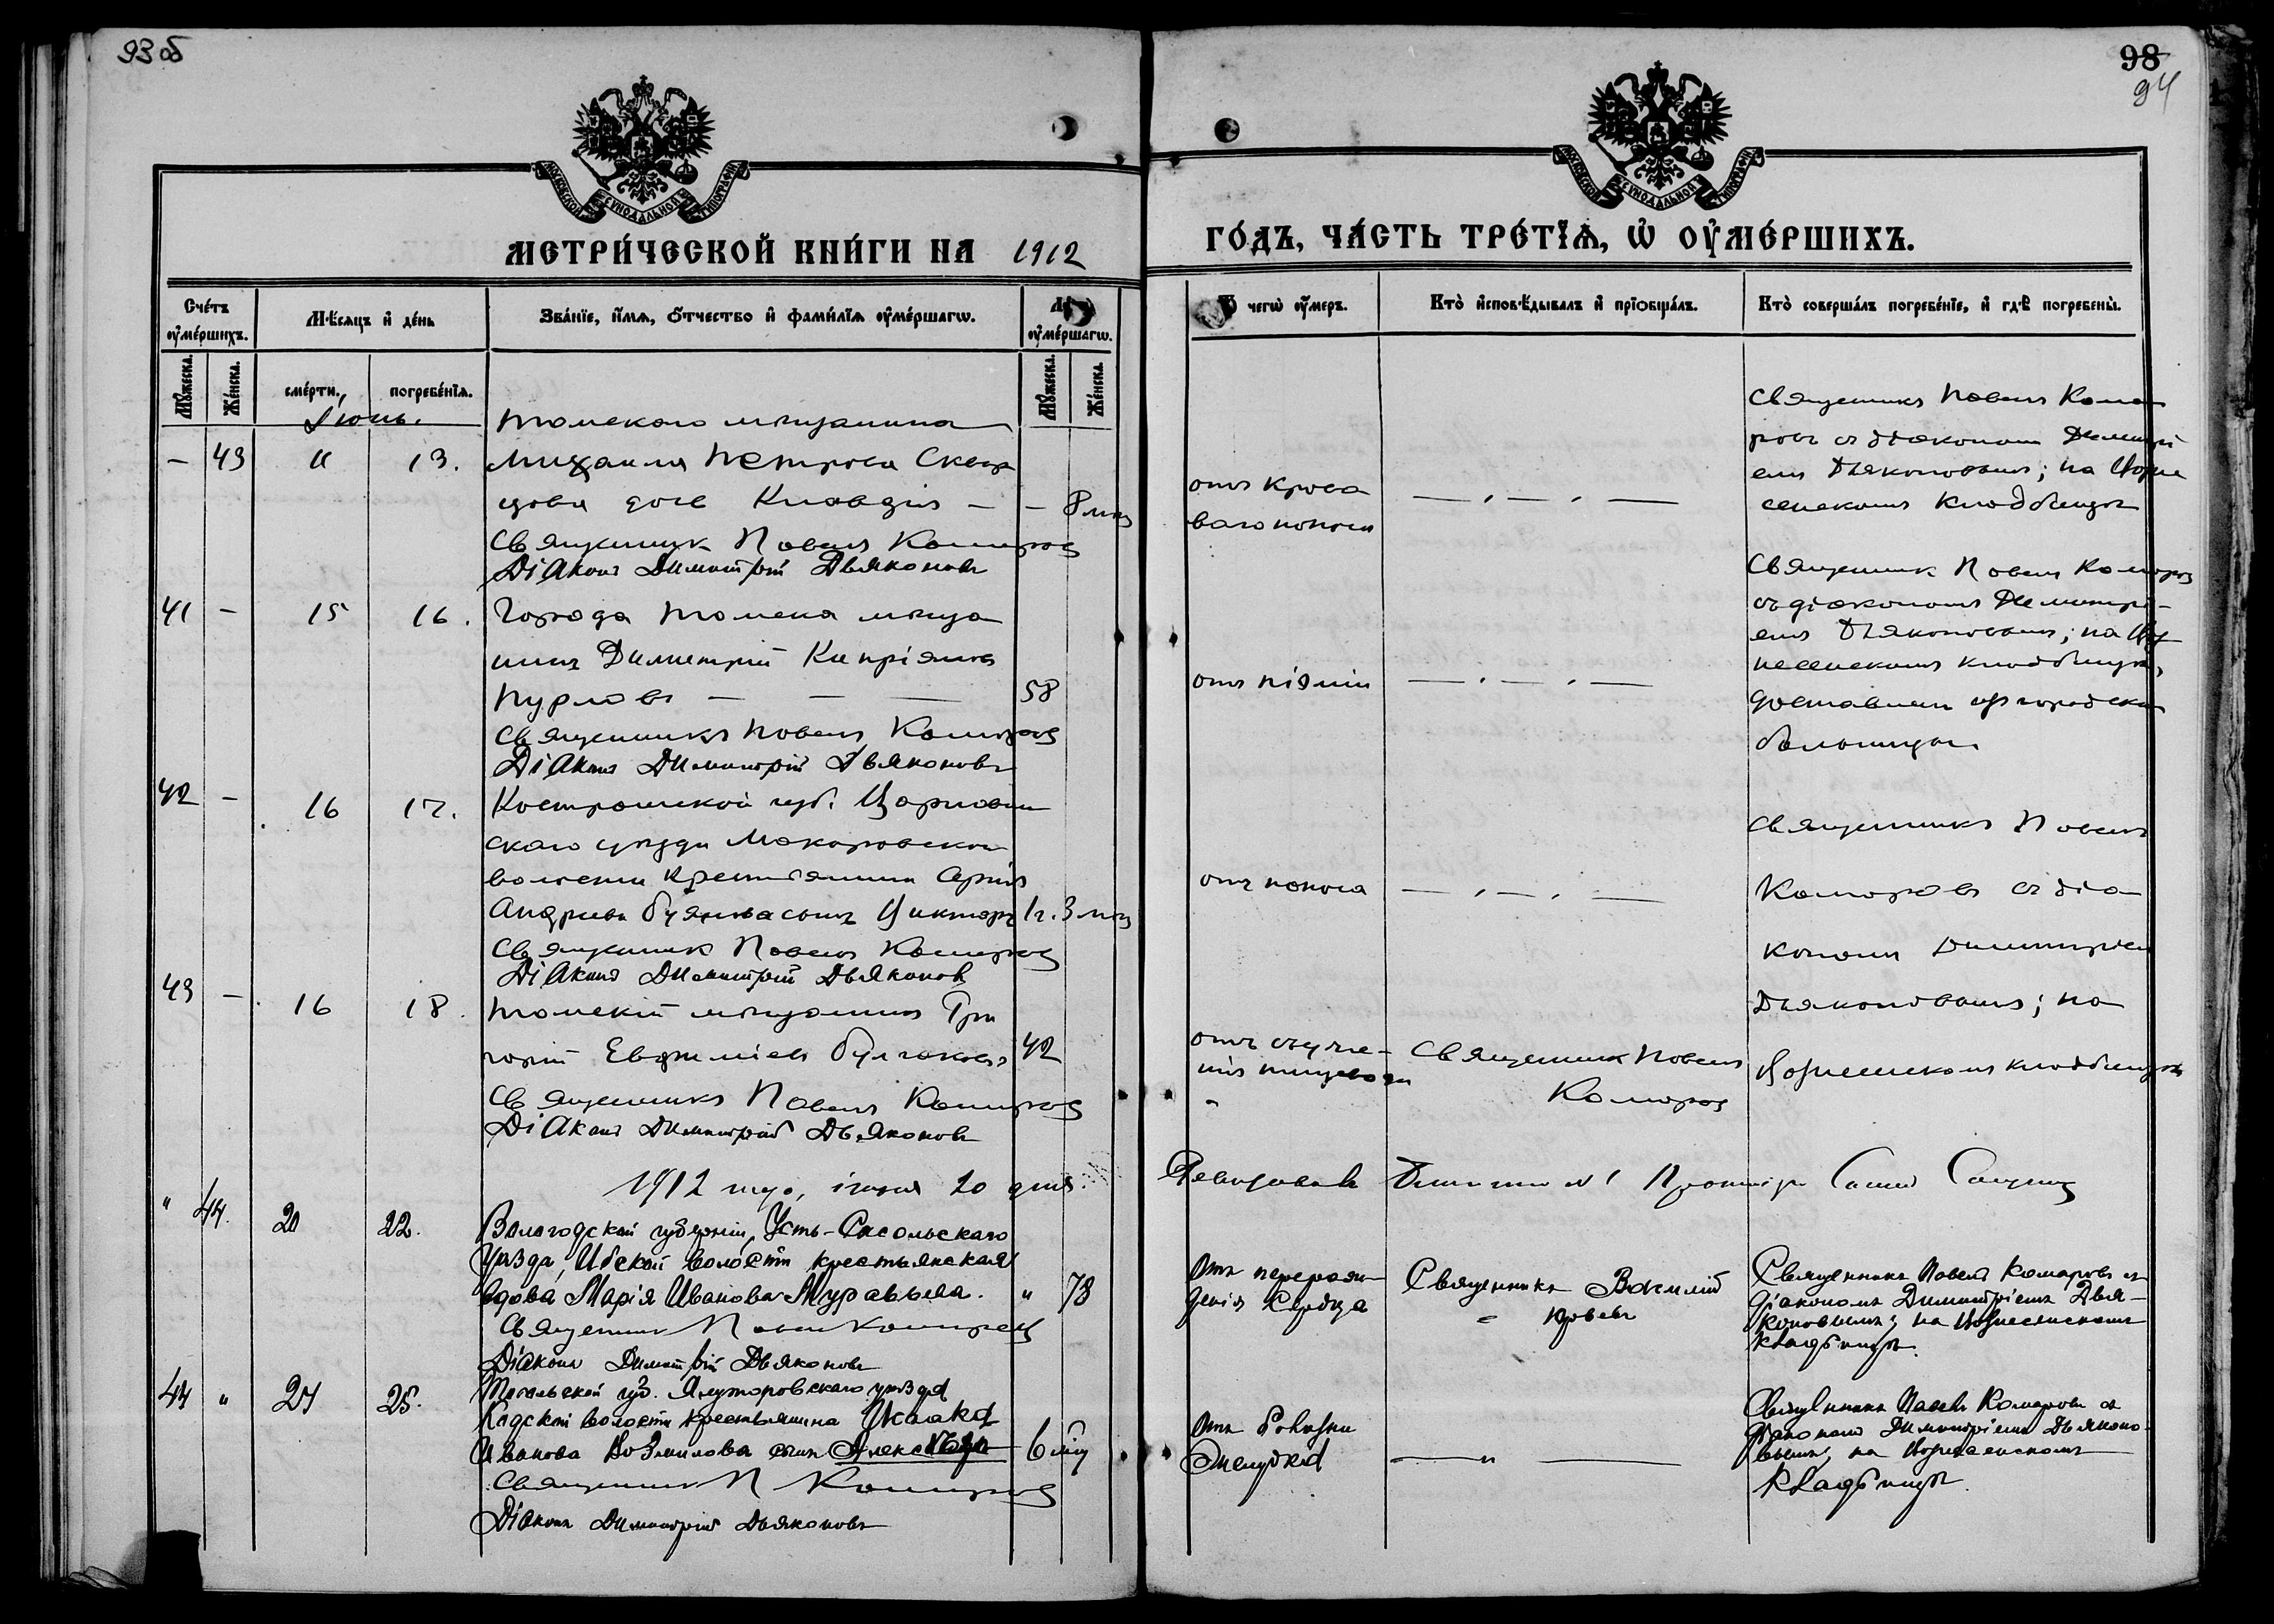 93 об
98
94
МОСКОВСКОЙ СѴНОДАЛЬНОЙ ТИПОГРАФІИ
МОСКОВСКОЙ СѴНОДАЛЬНОЙ ТИПОГРАФІИ
МЕТРИ́ЧЕСКОЙ КНИ́ГИ НА 1912
ГО́ДЪ, ЧА́СТЬ ТРЕ́ТЇѦ, Ѡ҆ ОУ҆МЕ́РШИХЪ.
Сче́тъ оу҆ме́ршихъ.
Мѣ́сѧцъ и҆ де́нь
Зва́нїе, и҆́мѧ, ѻ҆́тчество и҆ фами́лїѧ оу҆ме́ршагѡ.
оу҆ме́ршагѡ.
чегѡ̀ оу҆́меръ.
Кто̀ и҆сповѣ́дывалъ и҆ прїѻбща́лъ.
Кто̀ соверша́лъ погребе́нїе, и҆ гдѣ̀ погребены̀.
Мꙋ́жеска.
Же́нска.
сме́рти.
погребе́нїѧ.
Мꙋ́жеска.
Же́нска.
Іюнь.
— 43 11 13.
Томскаго мѣщанина
Михаила Петрова Сквор
цова дочь Клавдія — — 8 мц
Священник Павелъ Комаровъ
Діаконъ Димитрій Дьяконовъ
отъ крова
ваго поноса
— „ — „ —
Священникъ Павелъ Кома
ровъ съ діакономъ Димитрі
емъ Дьяконовымъ; на Возне
сенскомъ кладбищѣ
41 — 15 16.
Города Томска мѣща
нинъ Димитрій Кипріяновъ
Пурловъ — — — 58
Священникъ Павелъ Комаровъ
Діаконъ Димитрій Дьяконовъ
отъ піэміи
— „ — „ —
Священник Павелъ Комаровъ
съ діакономъ Димитрі-
емъ Дьяконовымъ; на Воз
несенскомъ кладбищѣ,
доставленъ изъ городской
больницы.
42 — 16 17.
Костромской губ. Варнавин
скаго уѣзда Макарьевской
волости крестьянина Сергія
Андреева сынъ Викторъ 1 г. 3 мц
Священник Павелъ Комаровъ
Діаконъ Димитрій Дьяконовъ
отъ поноса
— „ — „ —
Священникъ Павелъ
Комаровъ съ діа
кономъ Димитріемъ
Дьяконовымъ; на
Вознесенскомъ кладбищѣ
43 — 16 18.
Томскій мѣщанинъ Гри
горій Евфиміевъ Булгаковъ 42
Священникъ Павелъ Комаровъ
Діаконъ Димитрій Дьяконовъ
отъ съуже-
нія пищевода
Священник Павелъ
Комаровъ
1912 года, іюня 20 дня.
Ревизовалъ Благочин. № 1 Протоіерей
" 44. 20 22.
Вологодской губерніи, Усть-Сысольскаго
уѣзда, Ибской волости крестьянская
вдова Марія Иванова Муравьева. " 78
Священник Павелъ Комаровъ
Діаконъ Димитрій Дьяконовъ
Отъ перерож-
денія сердца
Священникъ Василій
Юрьевъ
Священникъ Павелъ Комаровъ съ
діакономъ Димитріемъ Дья-
коновымъ; на Вознесенскомъ
кладбищѣ.
44 " 24 25.
Тобольской губ. Ялуторовскаго уѣзда
волости крестьянина Исаака
Иванова сынъ Александръ 6 мц
Священник П Комаровъ
Діаконъ Димитрій Дьяконовъ
Отъ болѣзни
желудка
— „ —
Священникъ Павелъ Комаровъ съ
діакономъ Димитріемъ Дьяконо-
вымъ; на Вознесенскомъ
кладбищѣ.